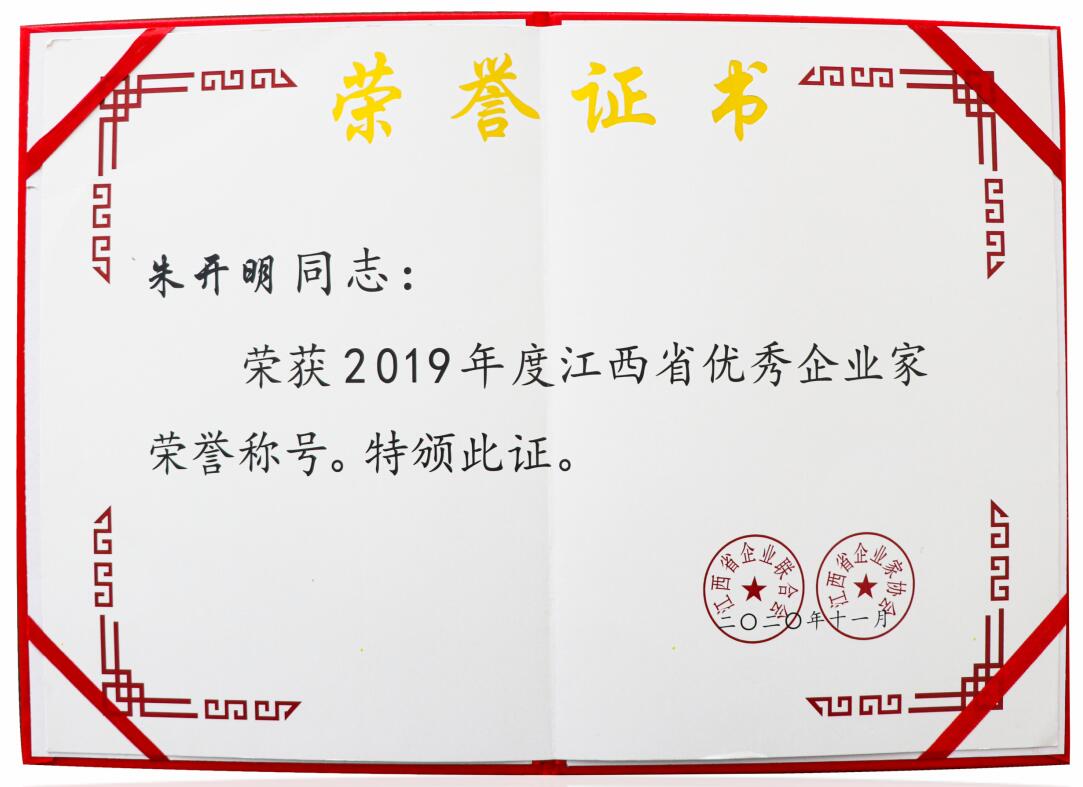 荣誉证书
朱开明同志：
荣获2019年度江西省优秀企业家
荣誉称号。特颁此证。
江西省企业联合会
江西省企业家协会
二〇二〇年十一月